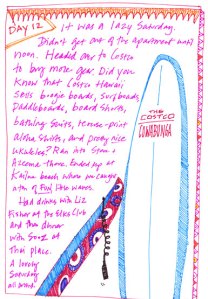 DAY 12
It was a lazy Saturday.
Didn't get out of the apartment until
noon. Headed over to Costco
to buy more gear. Did you
know that Costco Hawaii
sells boogie boards, surfboards,
paddleboards, board shirts,
bathing suits, kimono-print
aloha shirts, and pretty nice
ukuleles? Ran into Steve &
there. Ended up at
Kailua beach where we caught
a ton of fun little waves.
Had drinks with Liz
Fisher at the Elks Club
and then dinner
with at
Thai place.
A lovely
Saturday
all around.
THE
COSTCO
COWABUNGA